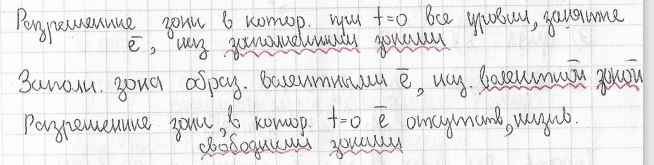 Разрешенные зоны в котор. при t=0 все уровни, заняты
ē, наз заполненными зонами
Заполн. зона образ. валентными ē, наз. валентной зоной
Разрешенные зоны, в котор. t=0 ē отсутств, назыв.
свободными зонами